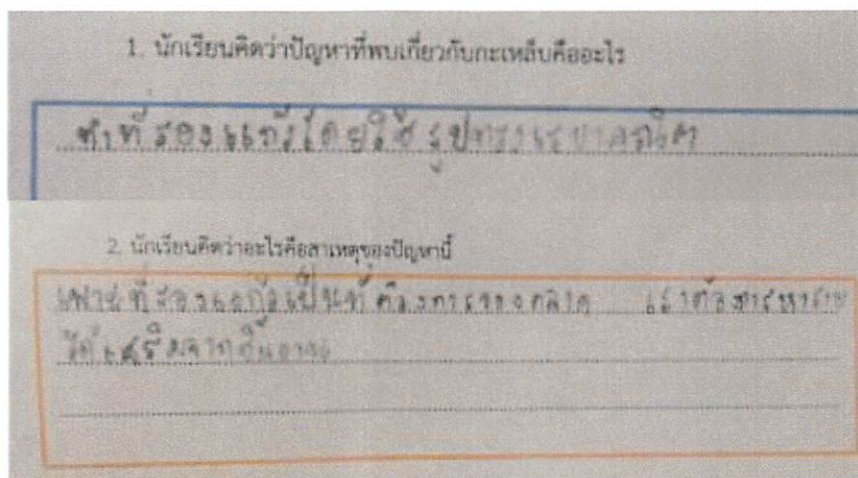 1. นักเรียนคิดว่าปัญหาที่พบเกี่ยวกับกะเหล็บคืออะไร
ทำที่รองแก้วโดยใช้รูปทรงเรขาคณิต
2. นักเรียนคิดว่าอะไรคือสาเหตุของปัญหานี้
เพราะที่รองแก้วเป็นที่ต้องการของตลาด เราต้องการหาราย
ได้เสริมจากชิ้นงาน